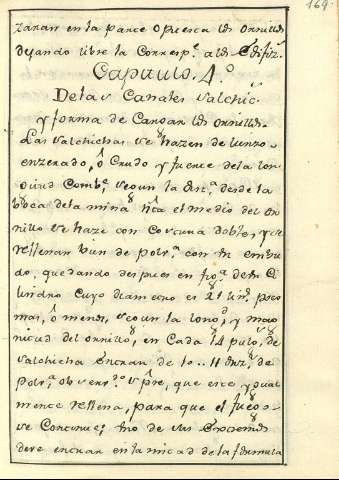 169.
zaran en la parte opuesta los ornillos
dejando libre la Corresp.te al Edifiz.
Capitulo. 4.º
De las Canales Salchic.
y forma de Cargar los ornillos.
Las Salchichas se hazen de lienzo
enzerado, ô Crudo y fuerte de la lon
gitud Comb.te segun la dist.a desde la
boca de la mina hta el medio del Or
nillo se haze con Costura doble, y se
rellenan bien de polv.a con un embu
do, quedando despues en fig.a de Ci
lindro cuyo diametro es 21 lin.s poco
mas, ô menos, segun la long.d y mag
nitud del ornillo, en Cada 14 pulg.s de
salchicha entran de 10. 11 onz.s de
polv.a observ.do spre, que este ygual
mente rellena, para que el fuego
se Continue; Uno de sus Extremos
deve entrar en la mitad de la formula